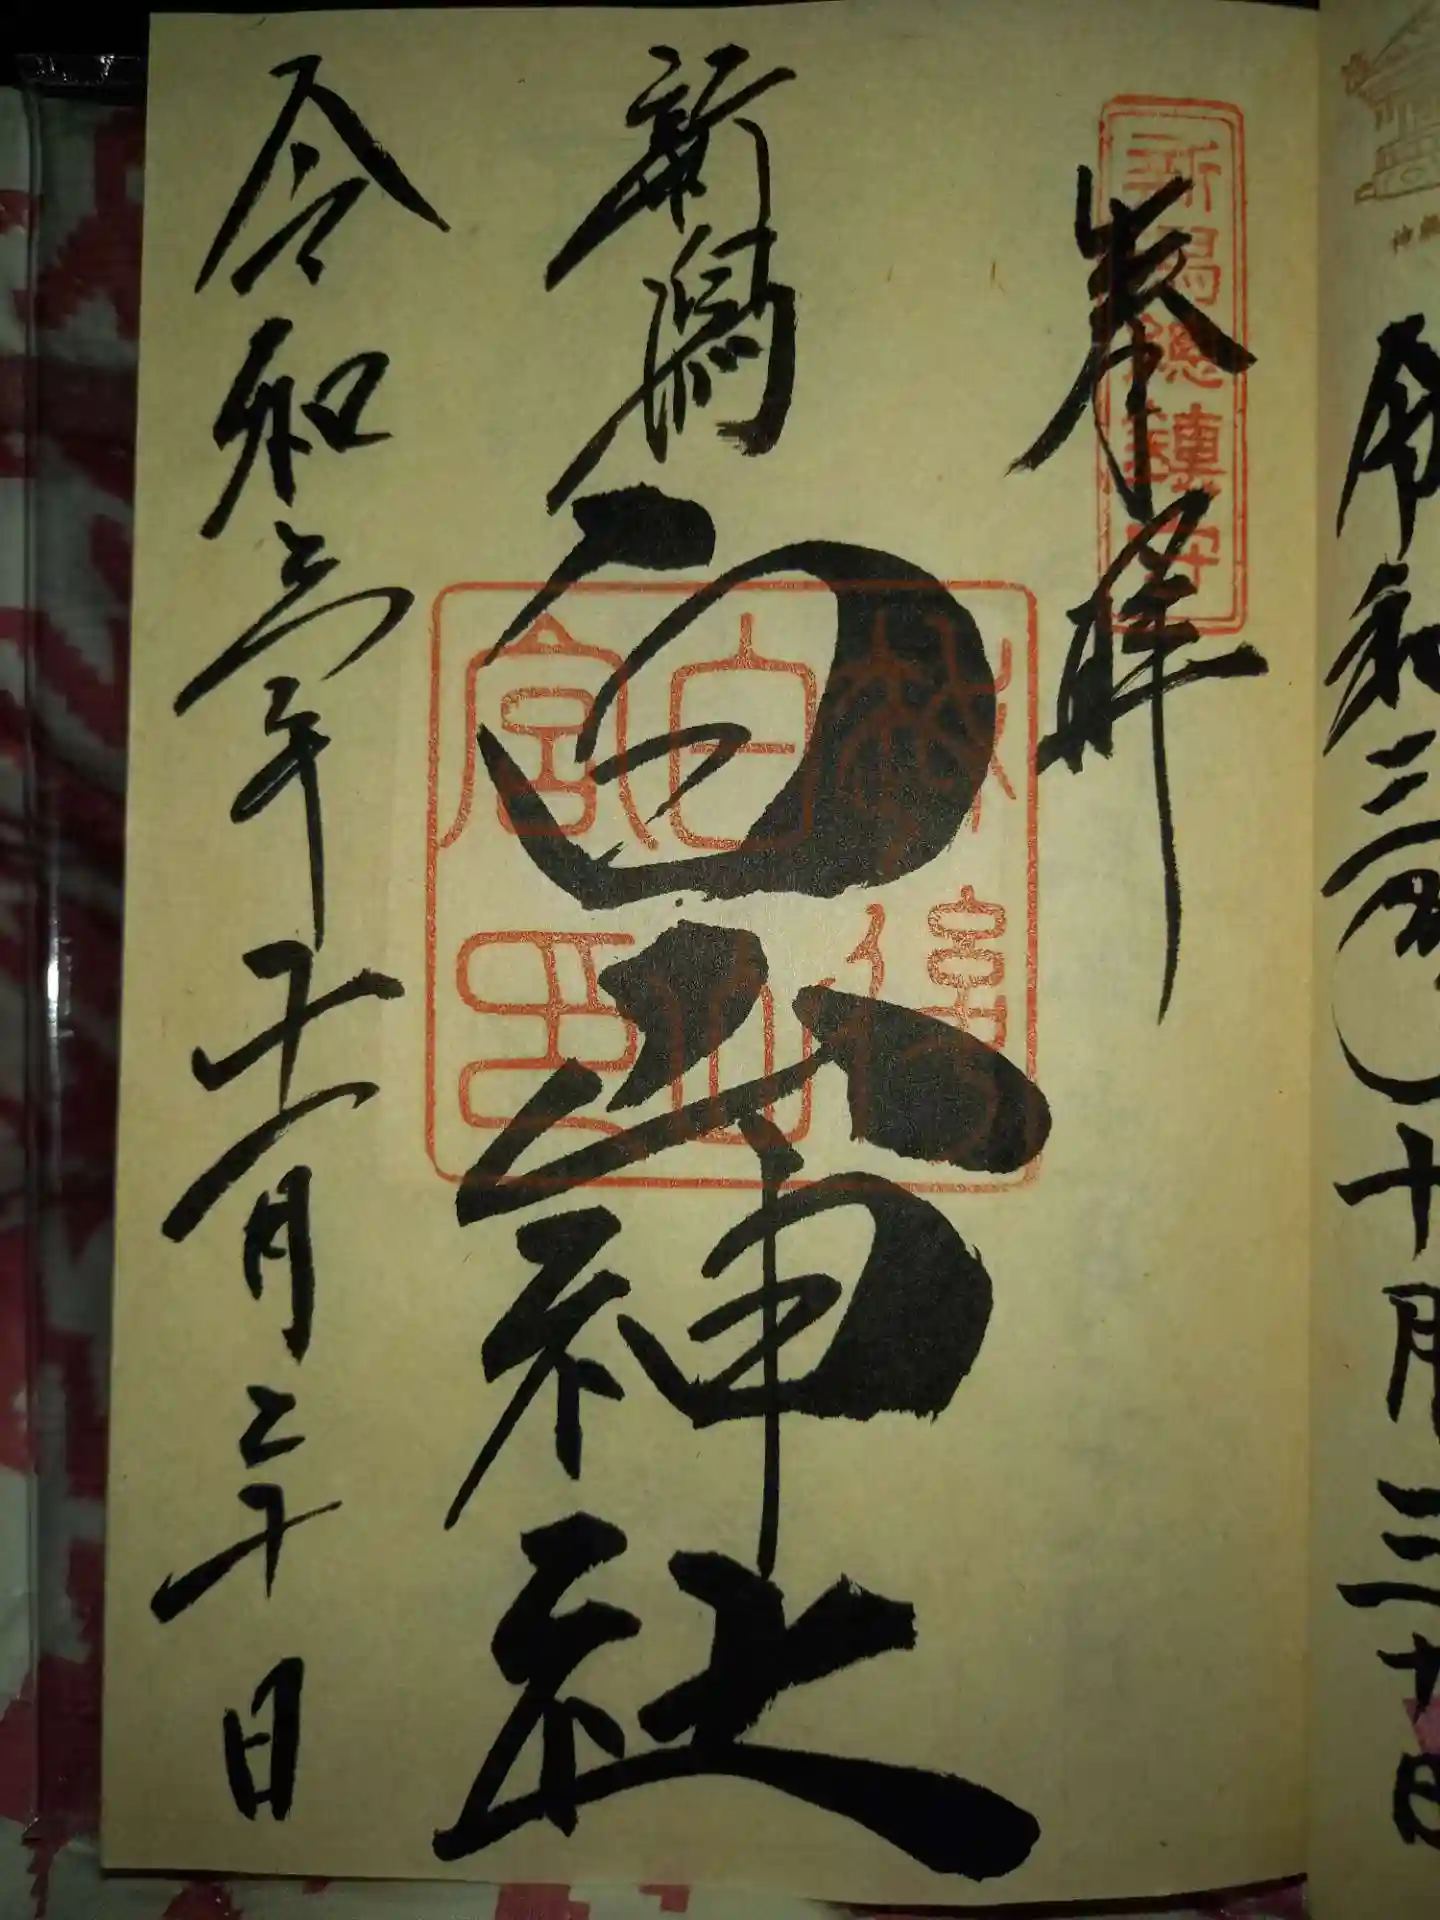 令和二
十月三十日
新潟總鎮守
奉拝
新潟白山神社
白山
宮印
令和
年十一月二十日